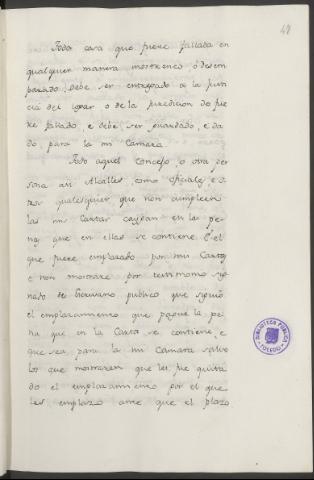 48
Toda cosa que fuere fallada en
qualquier manera mostrenco o desem
parado, debe ser entregado a la justi
cia del logar o de la juredicion do fue
re fallado, e debe ser guardado, e da
do, para la mi Camara
Todo aquel Concejo, o otra per
sona asi Alcalles, como oficiales, e o
tros qualesquier, que non cumplieren
las mis Cartas caygan en la pe
na que en ellas se contiene. E el
que fuere emplazado por mi Carta
e non mostrare por testimonio syg
nado de Escrivano publico que syguió
el emplazamiento que pague la pe
na que en la Carta se contiene, e
que sea para la mi Camara salvo
los que mostraren que les fue quita
do el emplazamiento por el que
les emplazo ante que el plazo
BIBLIOTECA PÚBLICA
TOLEDO